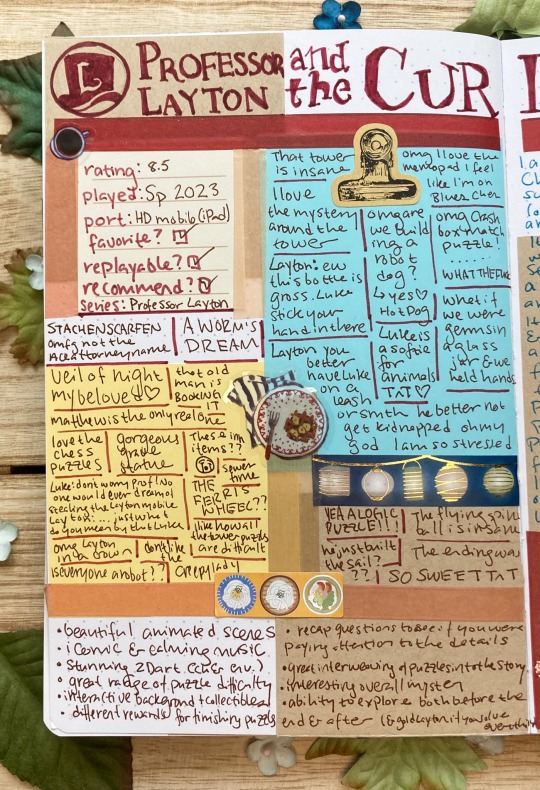 PROFESSOR and
LAYTON the CUR
L
rating: 8.5
played: Sp 2023
port: HD mobile (iPad)
favorite?
replayable?
recommend?
series: Professor Layton
STACHENSCARFEN
omfg not the
Ace attorney name
A WORM'S
DREAM
Veil of Night
my beloved♡
that old
man is
BOOKING
IT
matthew is the only real one
love the
chess
puzzles
gorgeous
grade
statue
These inn
items??
sewer
time
Luke: don't worry prof! No
one would ever dream of
stealing the Laytonmobile
Layton: .... just what
do you mean by that Luke
THE
FERRIS
WHEEL??
I like how all
the tower
puzzles
are difficult
omg Layton
in a crown
don't like
the
creepy lady
is everyone a robot??
That tower
is insane
omg I love the
memo pad I feel
like I'm on
Blues Clues
I love
the mystery
around the
tower
omg are
we build
ing a
robot
dog?
↳ yes♡
Hot Dog
omg Crash
box match
puzzle!
......
WHAT THE FUCK
Layton: ew
this bottle is
gross. Luke
stick your
hand in there
what if
we were
germs in
a glass
jar & we
held hands
Luke is
a softie
for
animals
TAT♡
Layton you
better
have Luke
on a
leash
or smth he better not
get kidnapped oh my
god I am so stressed
YEA A LOGIC
PUZZLE!!!
The flying spin
ball is insane
he just built
the sail?
??
The ending was
SO SWEET TAT
• beautiful animated scenes
• iconic & calming music
• stunning 2D art (char env.)
• great range of puzzle difficulty
• interactive background + collectibles
• different rewards for finishing puzzles
• recap questions to see if you were
paying attention to the details
• great interweaving of puzzles into the story
• interesting overall mystery
• ability to explore both before the
end & after (& gold layton if you solve
everything